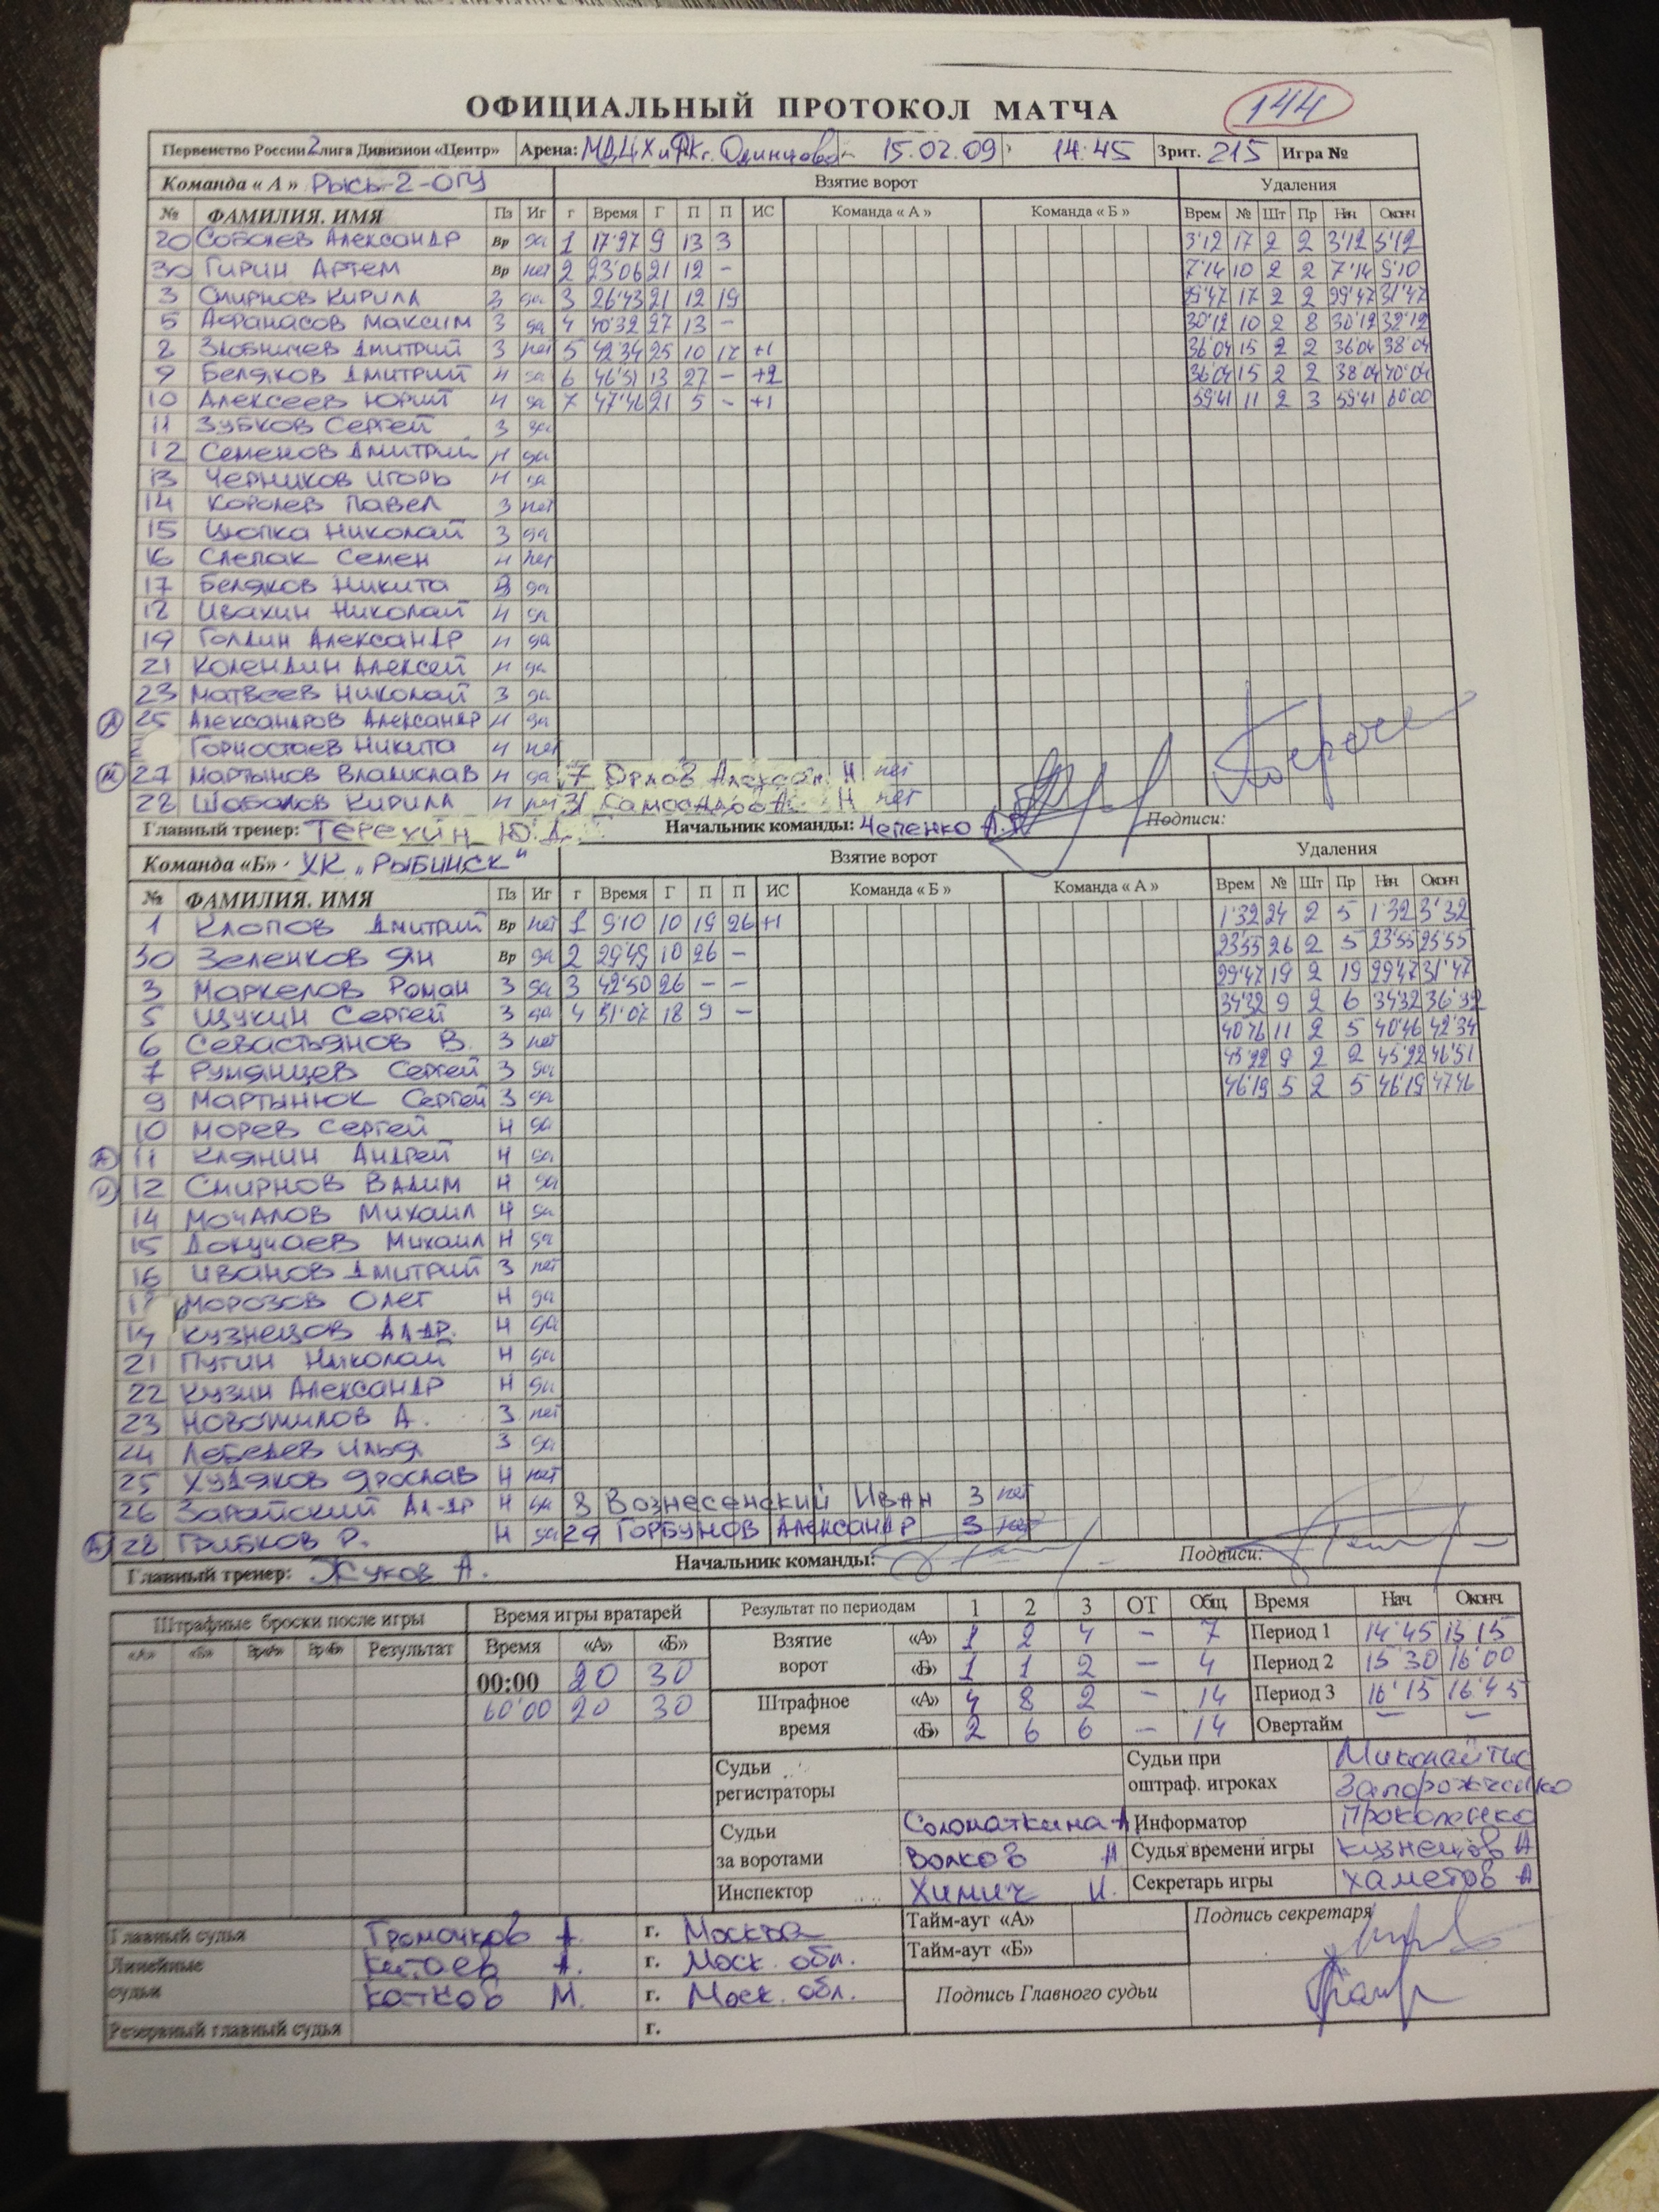 ОФИЦИАЛЬНЫЙ ПРОТОКОЛ МАТЧА 144
Первенство России 2 лига Дивизион «Центр» Арена: г. Одинцово 15.02.09 14:45 Зрит. 215 Игра №
Команда « А » Рысь-2-ОГУ Взятие ворот Удаления
№ ФАМИЛИЯ. ИМЯ Пз Иг г Время Г П П ИС Команда « А » Команда « Б » Врем № Шт Пр Нач Оконч
20 Соболев Александр Вр да 1 9 13 3 3'12 17 2 2 3'12 5'12
30 Гирин Артем Вр нет 2 23'06 21 12 - 7'14 10 2 2 7'14 9'10
3 Смирнов Кирилл З да 3 26'43 21 12 19 29'47 17 2 2 29'47 31'47
5 Афанасов Максим З да 4 40'32 27 13 - 30'12 10 2 8 30'12 32'12
2 Злобничев Дмитрий З нет 5 42'34 25 10 17 +1 36'04 15 2 2 36'04 38'04
9 Беляков Дмитрий Н да 6 46'51 13 27 - +2 36'04 15 2 2 38'04 40'04
10 Алексеев Юрий Н да 7 47'46 21 5 - +1 59'41 11 2 3 59'41 60'00
11 Зубков Сергей З да
12 Семенов Дмитрий Н да
13 Черников Игорь Н да
14 Королев Павел З нет
15 Цюпка Николай З да
16 Слепак Семен Н нет
17 Беляков Никита да
Ивахин Николай Н да
19 Голдин Александр Н да
21 Колендин Алексей Н да
23 Матвеев Николай З да
А 25 Александров Александр Н да
Горностаев Никита Н нет
27 Мартынов Владислав Н да 7 Орлов Н нет
28 Шабалов Кирилл Н 31 Н нет
Главный тренер: Терехин Ю.Д. Начальник команды: Чепенко Подписи:
Команда «Б» ХК „РЫБИНСК" Взятие ворот Удаления
№ ФАМИЛИЯ. ИМЯ Пз Иг г Время Г П П ИС Команда « Б » Команда « А » Врем № Шт Пр Нач Оконч
1 Клопов Дмитрий Вр нет 1 9'10 10 19 26 +1 1'32 24 2 5 1'32 3'32
30 Зеленков Ян Вр да 2 29'49 10 26 - 23'55 26 2 5 23'55 25'55
3 Маркелов Роман З да 3 42'50 26 - - 29'47 19 2 19 29'47 31'47
5 Щукин Сергей З да 4 51'07 18 9 - 34'32 9 2 6 34'32 36'32
6 Севастьянов В. З нет 40'46 11 2 5 40'46 42'34
7 Румянцев Сергей З да 45'22 9 2 2 45'22 46'51
9 Мартынюк Сергей З да 46'19 5 2 5 46'19 47'46
10 Морев Сергей Н да
А 11 Клянин Андрей Н да
12 Смирнов Вадим Н да
14 Мочалов Михаил Н да
15 Докучаев Михаил Н да
16 Иванов Дмитрий З нет
Морозов Олег Н да
19 Кузнецов Ал-др. Н да
21 Пугин Николай Н да
22 Кузин Александр Н да
23 Новожилов А. З нет
24 Лебедев Илья З да
25 Худяков Ярослав Н нет
26 Зарайский Ал-др Н да 8 Вознесенский Иван З нет
А 28 Грибков Р. Н да 29 Горбунов Александр З нет
Главный тренер: Жуков А. Начальник команды: Подписи:
Штрафные броски после игры Время игры вратарей Результат по периодам 1 2 3 ОТ Общ. Время Нач. Оконч.
«А» «Б» Вр«А» Вр«Б» Результат Время «А» «Б» Взятие ворот «А» 1 2 4 - 7 Период 1 14'45 15'15
00:00 20 30 «Б» 1 1 2 - 4 Период 2 15'30 16'00
60'00 20 30 Штрафное время «А» 4 8 2 - 14 Период 3 16'15 16'45
«Б» 2 6 6 - 14 Овертайм - -
Судьи регистраторы Судьи при оштраф. игроках Миколайтис
Запорожченко
Судьи за воротами Соломаткина А. Информатор
Волков А Судья времени игры Кузнецов А
Инспектор Химич И. Секретарь игры Хаметов А
Главный судья Громочков А. г. Москва Тайм-аут «А» Подпись секретаря
Линейные судьи Китаев А. г. Моск. обл. Тайм-аут «Б»
Катков М. г. Моск. обл. Подпись Главного судьи
Резервный главный судья г.